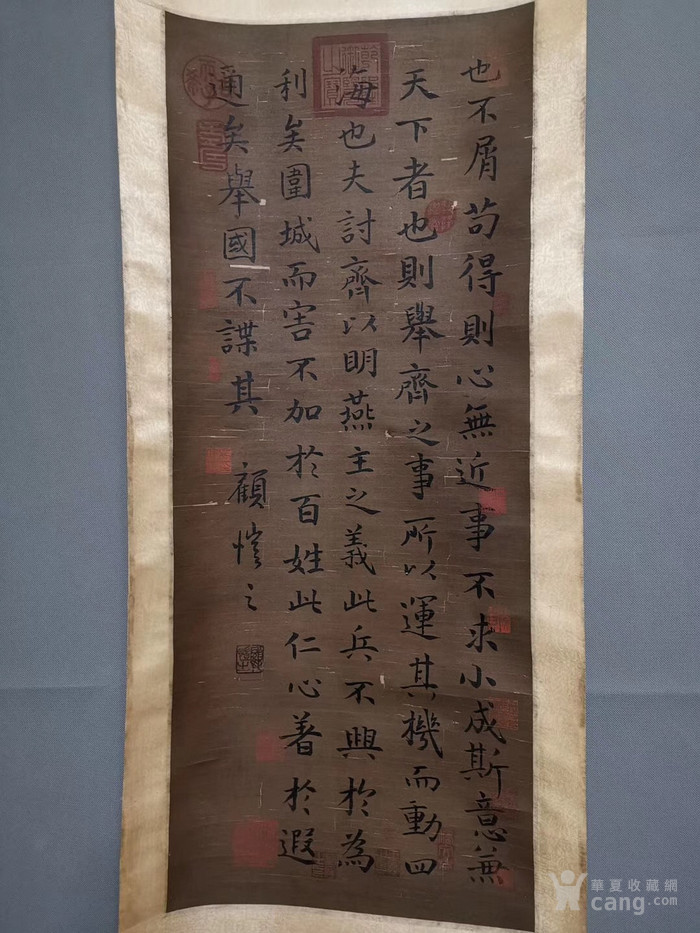 也不屑苟得則心無近事不求小成斯意兼
天下者也則舉齊之事所以運其機而動四
海也夫討齊以明燕主之義此兵不興於為
利矣圍城而害不加於百姓此仁心著於遐
通矣舉國不謀其
顧愷之
華夏收藏網
cang.com